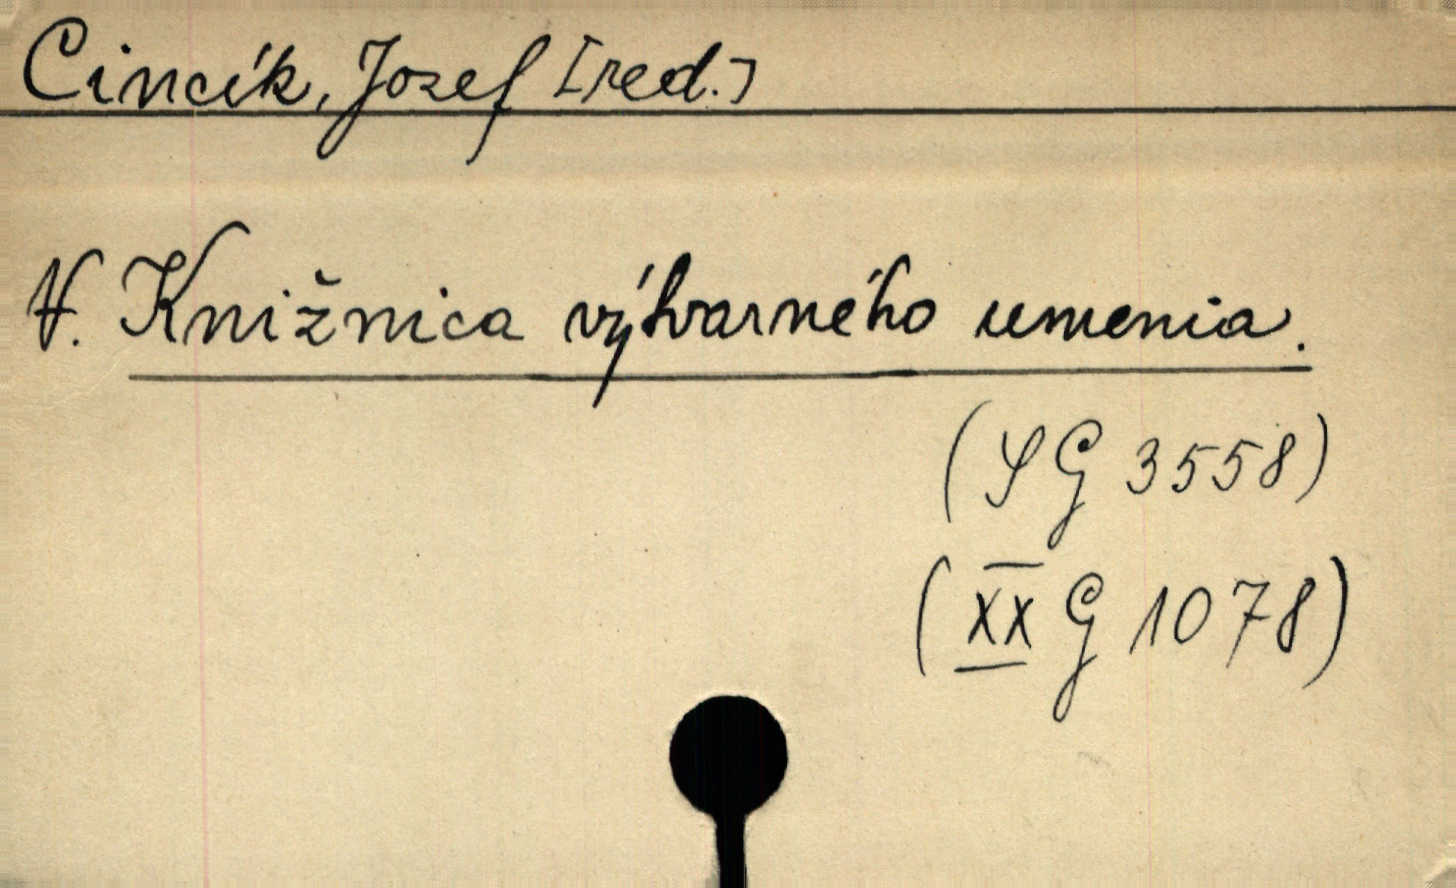 Cincík, Jozef [red.]
V. Knižnica výtvarného umenia.
(SG 3558)
(XX G 1078)